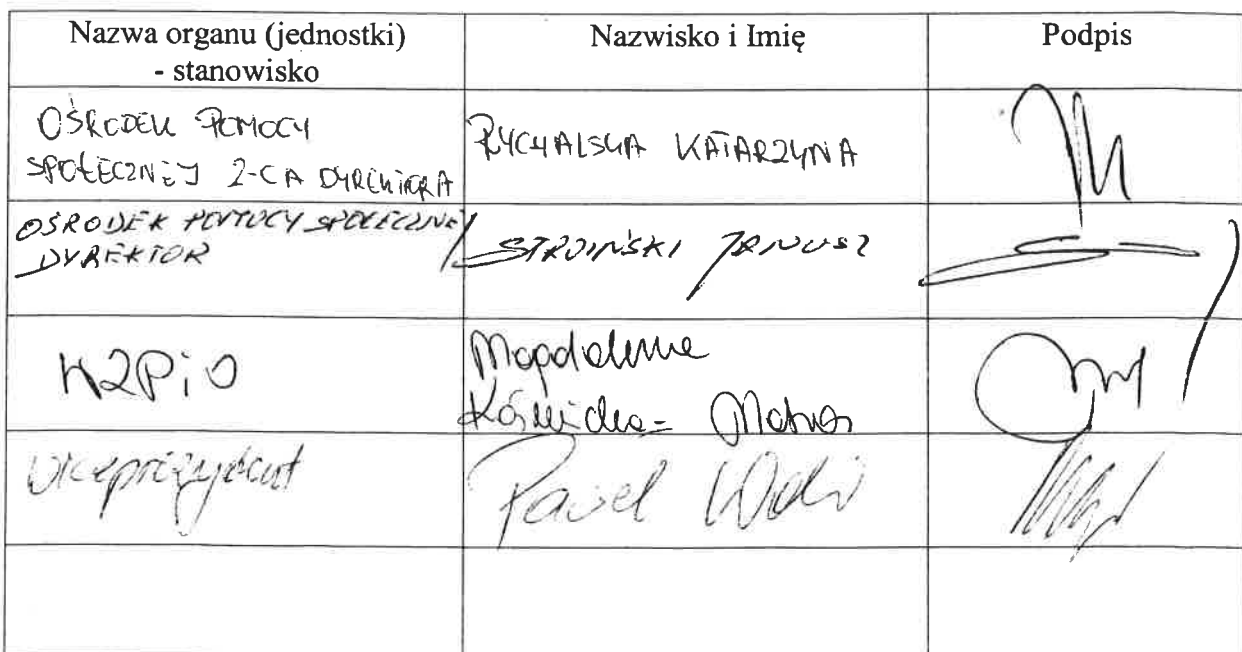 Nazwa organu (jednostki)
- stanowisko
Nazwisko i Imię
Podpis
OŚRODEK POMOCY
SPOŁECZNEJ Z-CA DYREKTORA
RYCHALSKA KATARZYNA
OŚRODEK POMOCY SPOŁECZNEJ
DYREKTOR
STROIŃSKI JANUSZ
Magdalena
wiceprezydent
Paweł